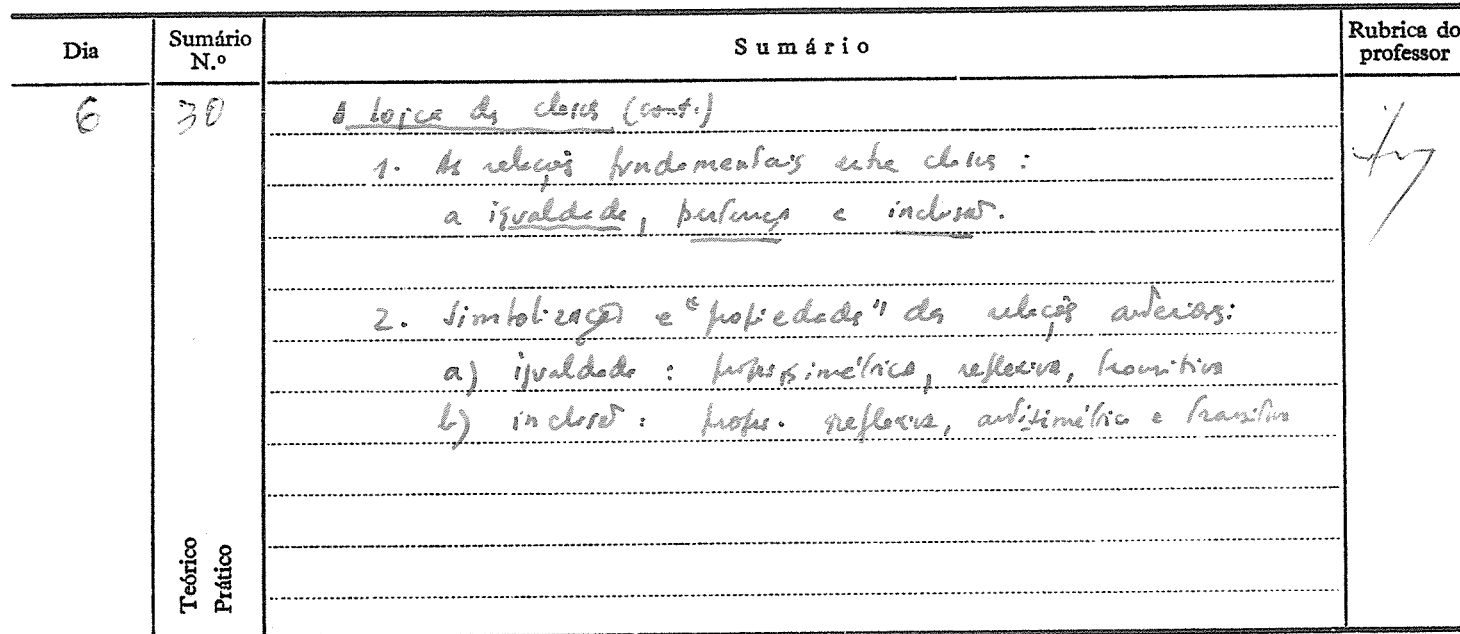 Dia
Sumário N.º
Sumário
Rubrica do professor
6
30
A logica das classes (cont.)
1. As relações fundamentais entre classes :
a igualdade, pertença e inclusão.
2. Simbolização e "propiedades" das relações anteriores:
a) igualdade : propr. simétrica, reflexiva, transitiva
b) inclusão : propr. reflexiva, antisimétrica e transitiva
Teórico
Prático